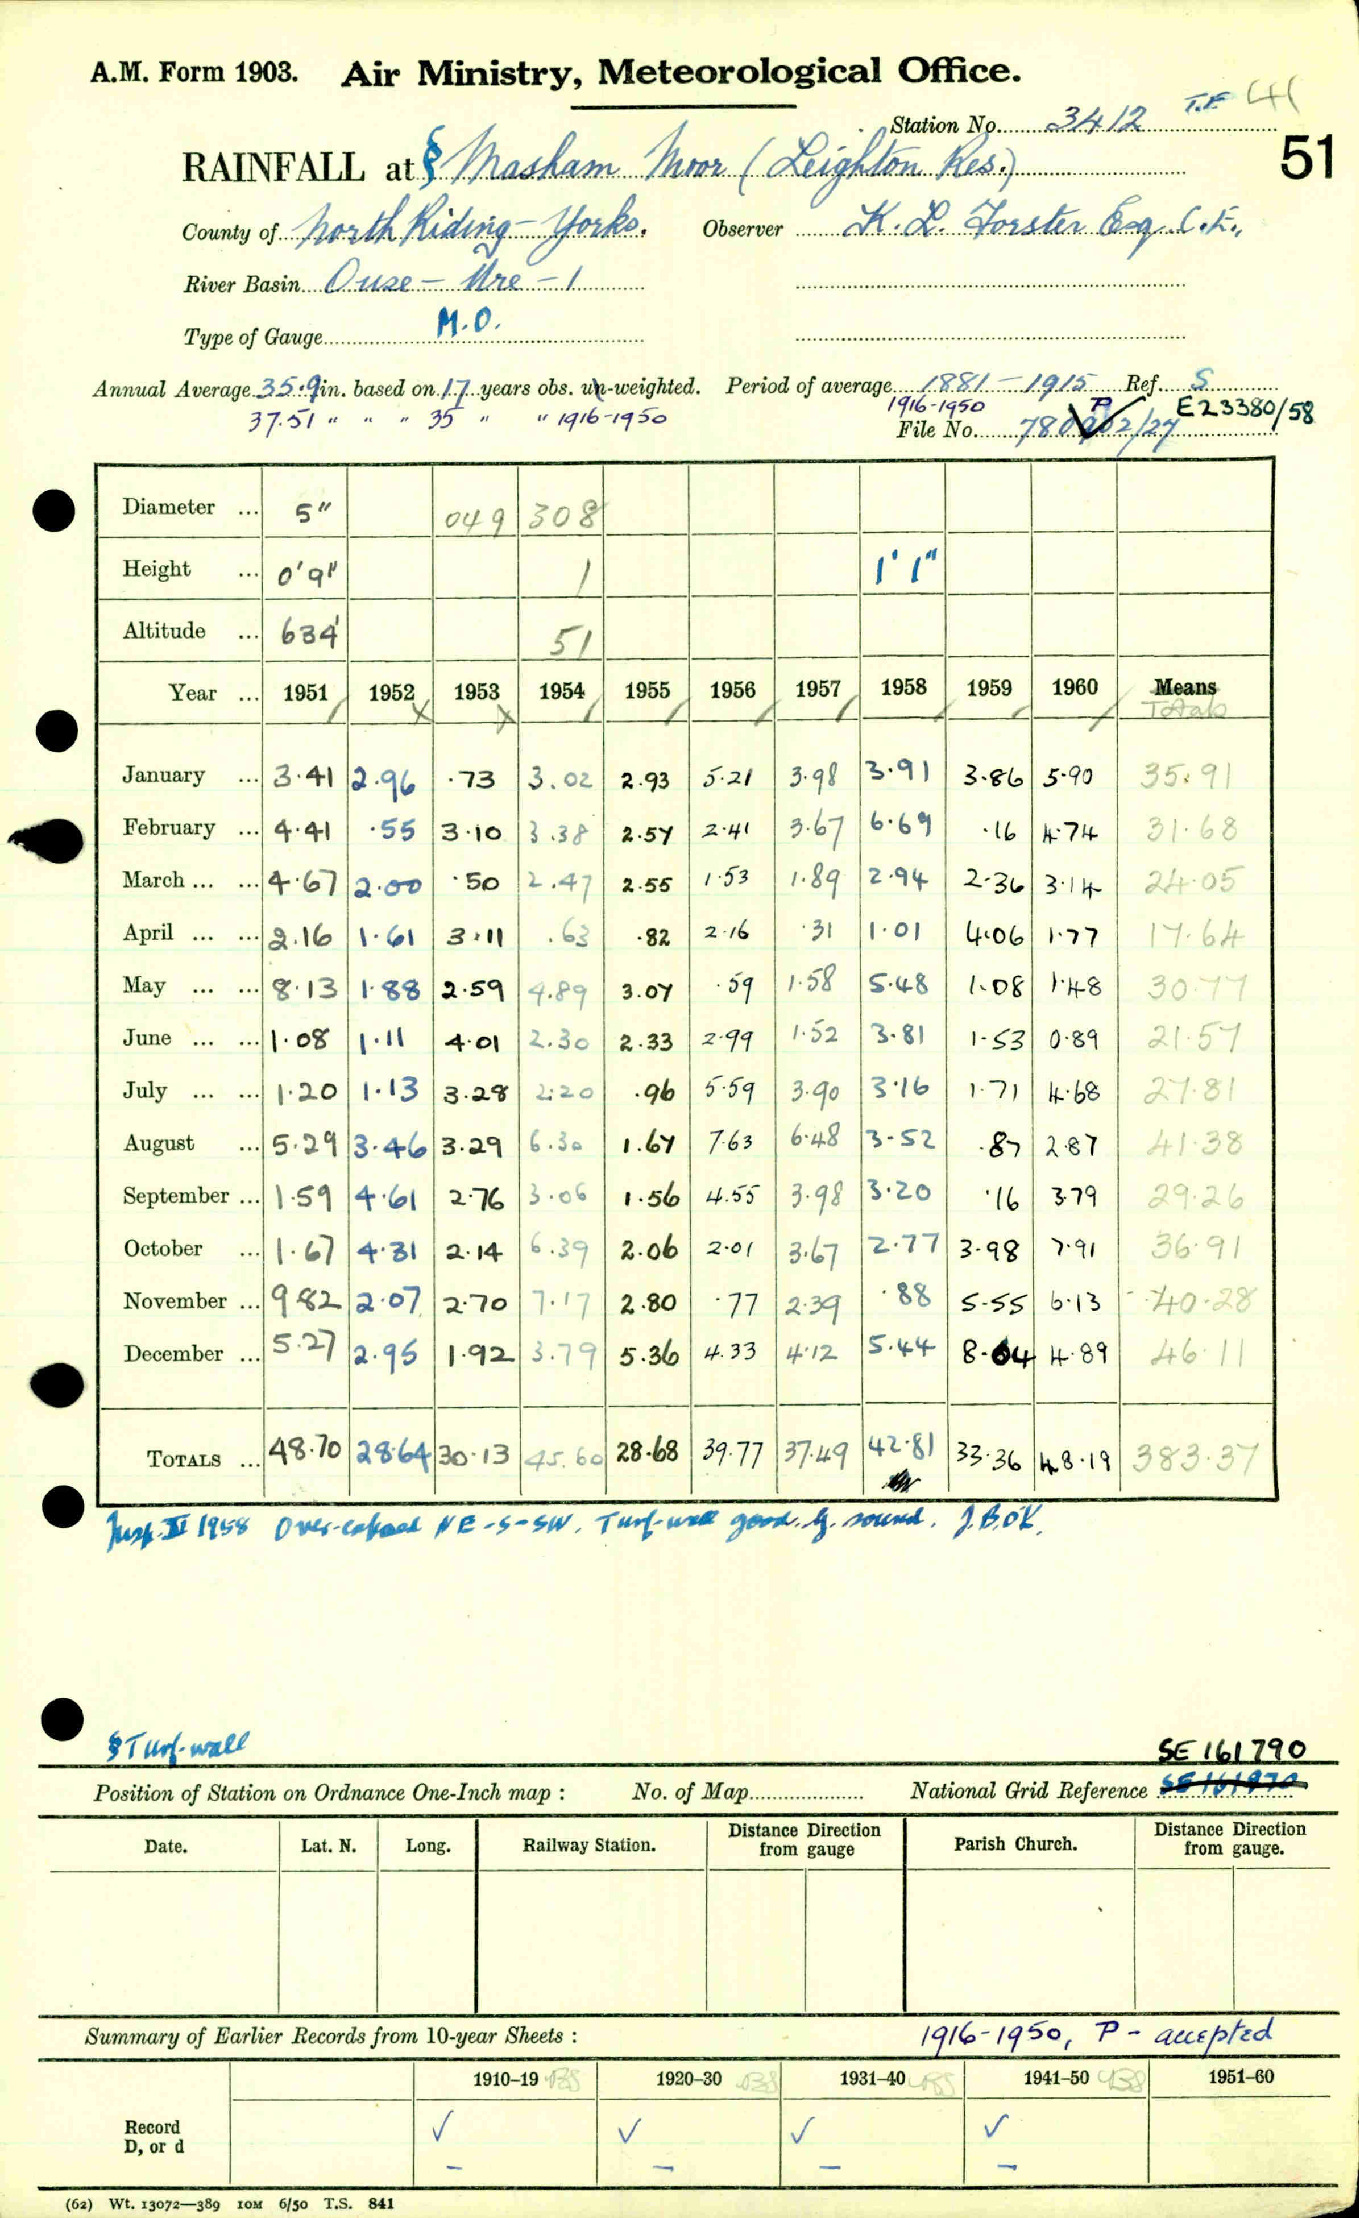 A.M. Form 1903. Air Ministry, Meteorological Office.
T.F 41
Station No. 3412
51
RAINFALL at § Masham Moor (Leighton Res.)
County of North Riding - Yorks. Observer K. L. Forster Esq. C.E.,
River Basin Ouse - Ure - 1
Type of Gauge M.O.
Annual Average 35.9 in. based on 17 years obs. un-weighted. Period of average 1881 - 1915 Ref. S
37.51 " " " 35 " " 1916-1950 1916-1950 P E23380/58
File No.
Diameter ... 5" 049 308
Height ... 0'9" 1 1'1"
Altitude ... 634' 51
Year ... 1951 1952 1953 1954 1955 1956 1957 1958 1959 1960 Means
Totals
January ... 3.41 2.96 .73 3.02 2.93 5.21 3.98 3.91 3.86 5.90 35.91
February ... 4.41 .55 3.10 3.38 2.57 2.41 3.67 6.69 .16 4.74 31.68
March ... ... 4.67 2.00 .50 2.47 2.55 1.53 1.89 2.94 2.36 3.14 24.05
April ... ... 2.16 1.61 3.11 .63 .82 2.16 .31 1.01 4.06 1.77 17.64
May ... ... 8.13 1.88 2.59 4.89 3.07 .59 1.58 5.48 1.08 1.48 30.77
June ... ... 1.08 1.11 4.01 2.30 2.33 2.99 1.52 3.81 1.53 0.89 21.57
July ... ... 1.20 1.13 3.28 2.20 .96 5.59 3.90 3.16 1.71 4.68 27.81
August ... 5.29 3.46 3.29 6.30 1.67 7.63 6.48 3.52 .87 2.87 41.38
September ... 1.59 4.61 2.76 3.06 1.56 4.55 3.98 3.20 .16 3.79 29.26
October ... 1.67 4.31 2.14 6.39 2.06 2.01 3.67 2.77 3.98 7.91 36.91
November ... 9.82 2.07 2.70 7.17 2.80 .77 2.39 .88 5.55 6.13 40.28
December ... 5.27 2.95 1.92 3.79 5.36 4.33 4.12 5.44 8.04 4.89 46.11
Totals ... 48.70 28.64 30.13 45.60 28.68 39.77 37.49 42.81 33.36 48.19 383.37
Insp. 1958 Over-exposed NE-S-SW. Turf-wall good. G. sound. J.B.O'K.
§ Turf-wall
SE 161790
Position of Station on Ordnance One-Inch map : No. of Map National Grid Reference SE 161870
Date. Lat. N. Long. Railway Station. Distance from gauge Direction Parish Church. Distance from gauge. Direction
Summary of Earlier Records from 10-year Sheets : 1916-1950, P - accepted
1910-19 1920-30 1931-40 1941-50 1951-60
Record ✓ ✓ ✓ ✓
D, or d – – – –
(62) Wt. 13072—389 10M 6/50 T.S. 841